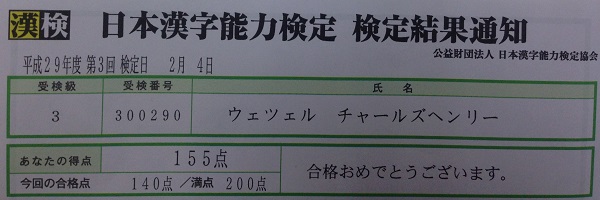 漢検 日本漢字能力検定 検定結果通知
公益財団法人 日本漢字能力検定協会
平成29年度 第3回 検定日 2月 4日
受検級 受検番号 氏 名
3 300290 ウェツェル チャールズヘンリー
あなたの得点 155点
合格おめでとうございます。
今回の合格点 140点 ／満点 200点